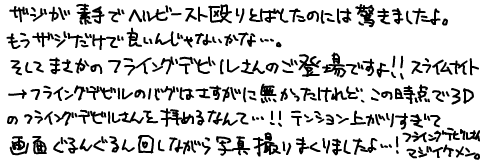 ザジが素手でヘルビースト殴りとばしたのには驚きましたよ。
もうザジだけで良いんじゃないかな…。
そしてまさかのフライングデビルさんのご登場ですよ!!スライムナイト
→フライングデビルのバグはさすがに無かったけれど、この時点で3D
のフライングデビルさんを拝めるなんて…!!テンション上がりすぎて
画面ぐるんぐるん回しながら写真撮りまくりましたよ…!フライングデビルさん
マジイケメン。